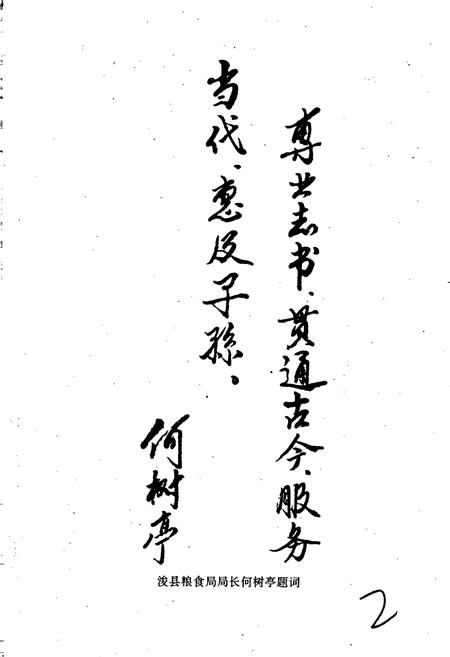 專业志书、贯通古今、服务
当代、惠及子孫。
何树亭
浚县粮食局局长何树亭题词
2